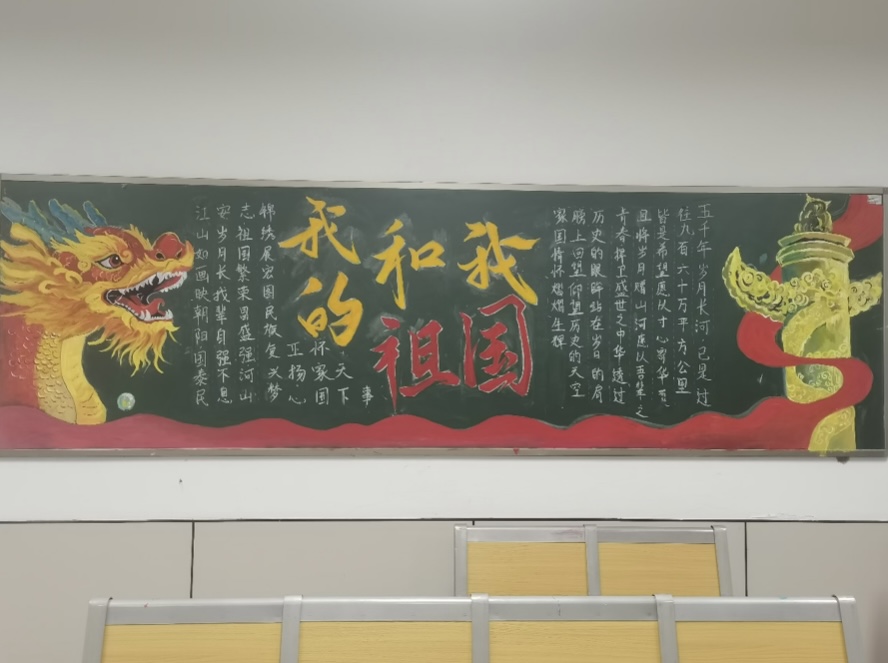 我和我
的祖国
五千年岁月长河已是过
往九百六十万平方公里
皆是希望愿以寸心寄华夏
且将岁月赠山河愿以吾辈之
青春捍卫盛世之中华透过
历史的眼眸站在岁月的肩
膀上回望仰望历史的天空
家国情怀熠熠生辉
江山如画映朝阳国泰民
安岁月长我辈自强不息
志祖国繁荣昌盛强河山
锦绣展宏图民族复兴梦
正扬心
怀家国
天下
事